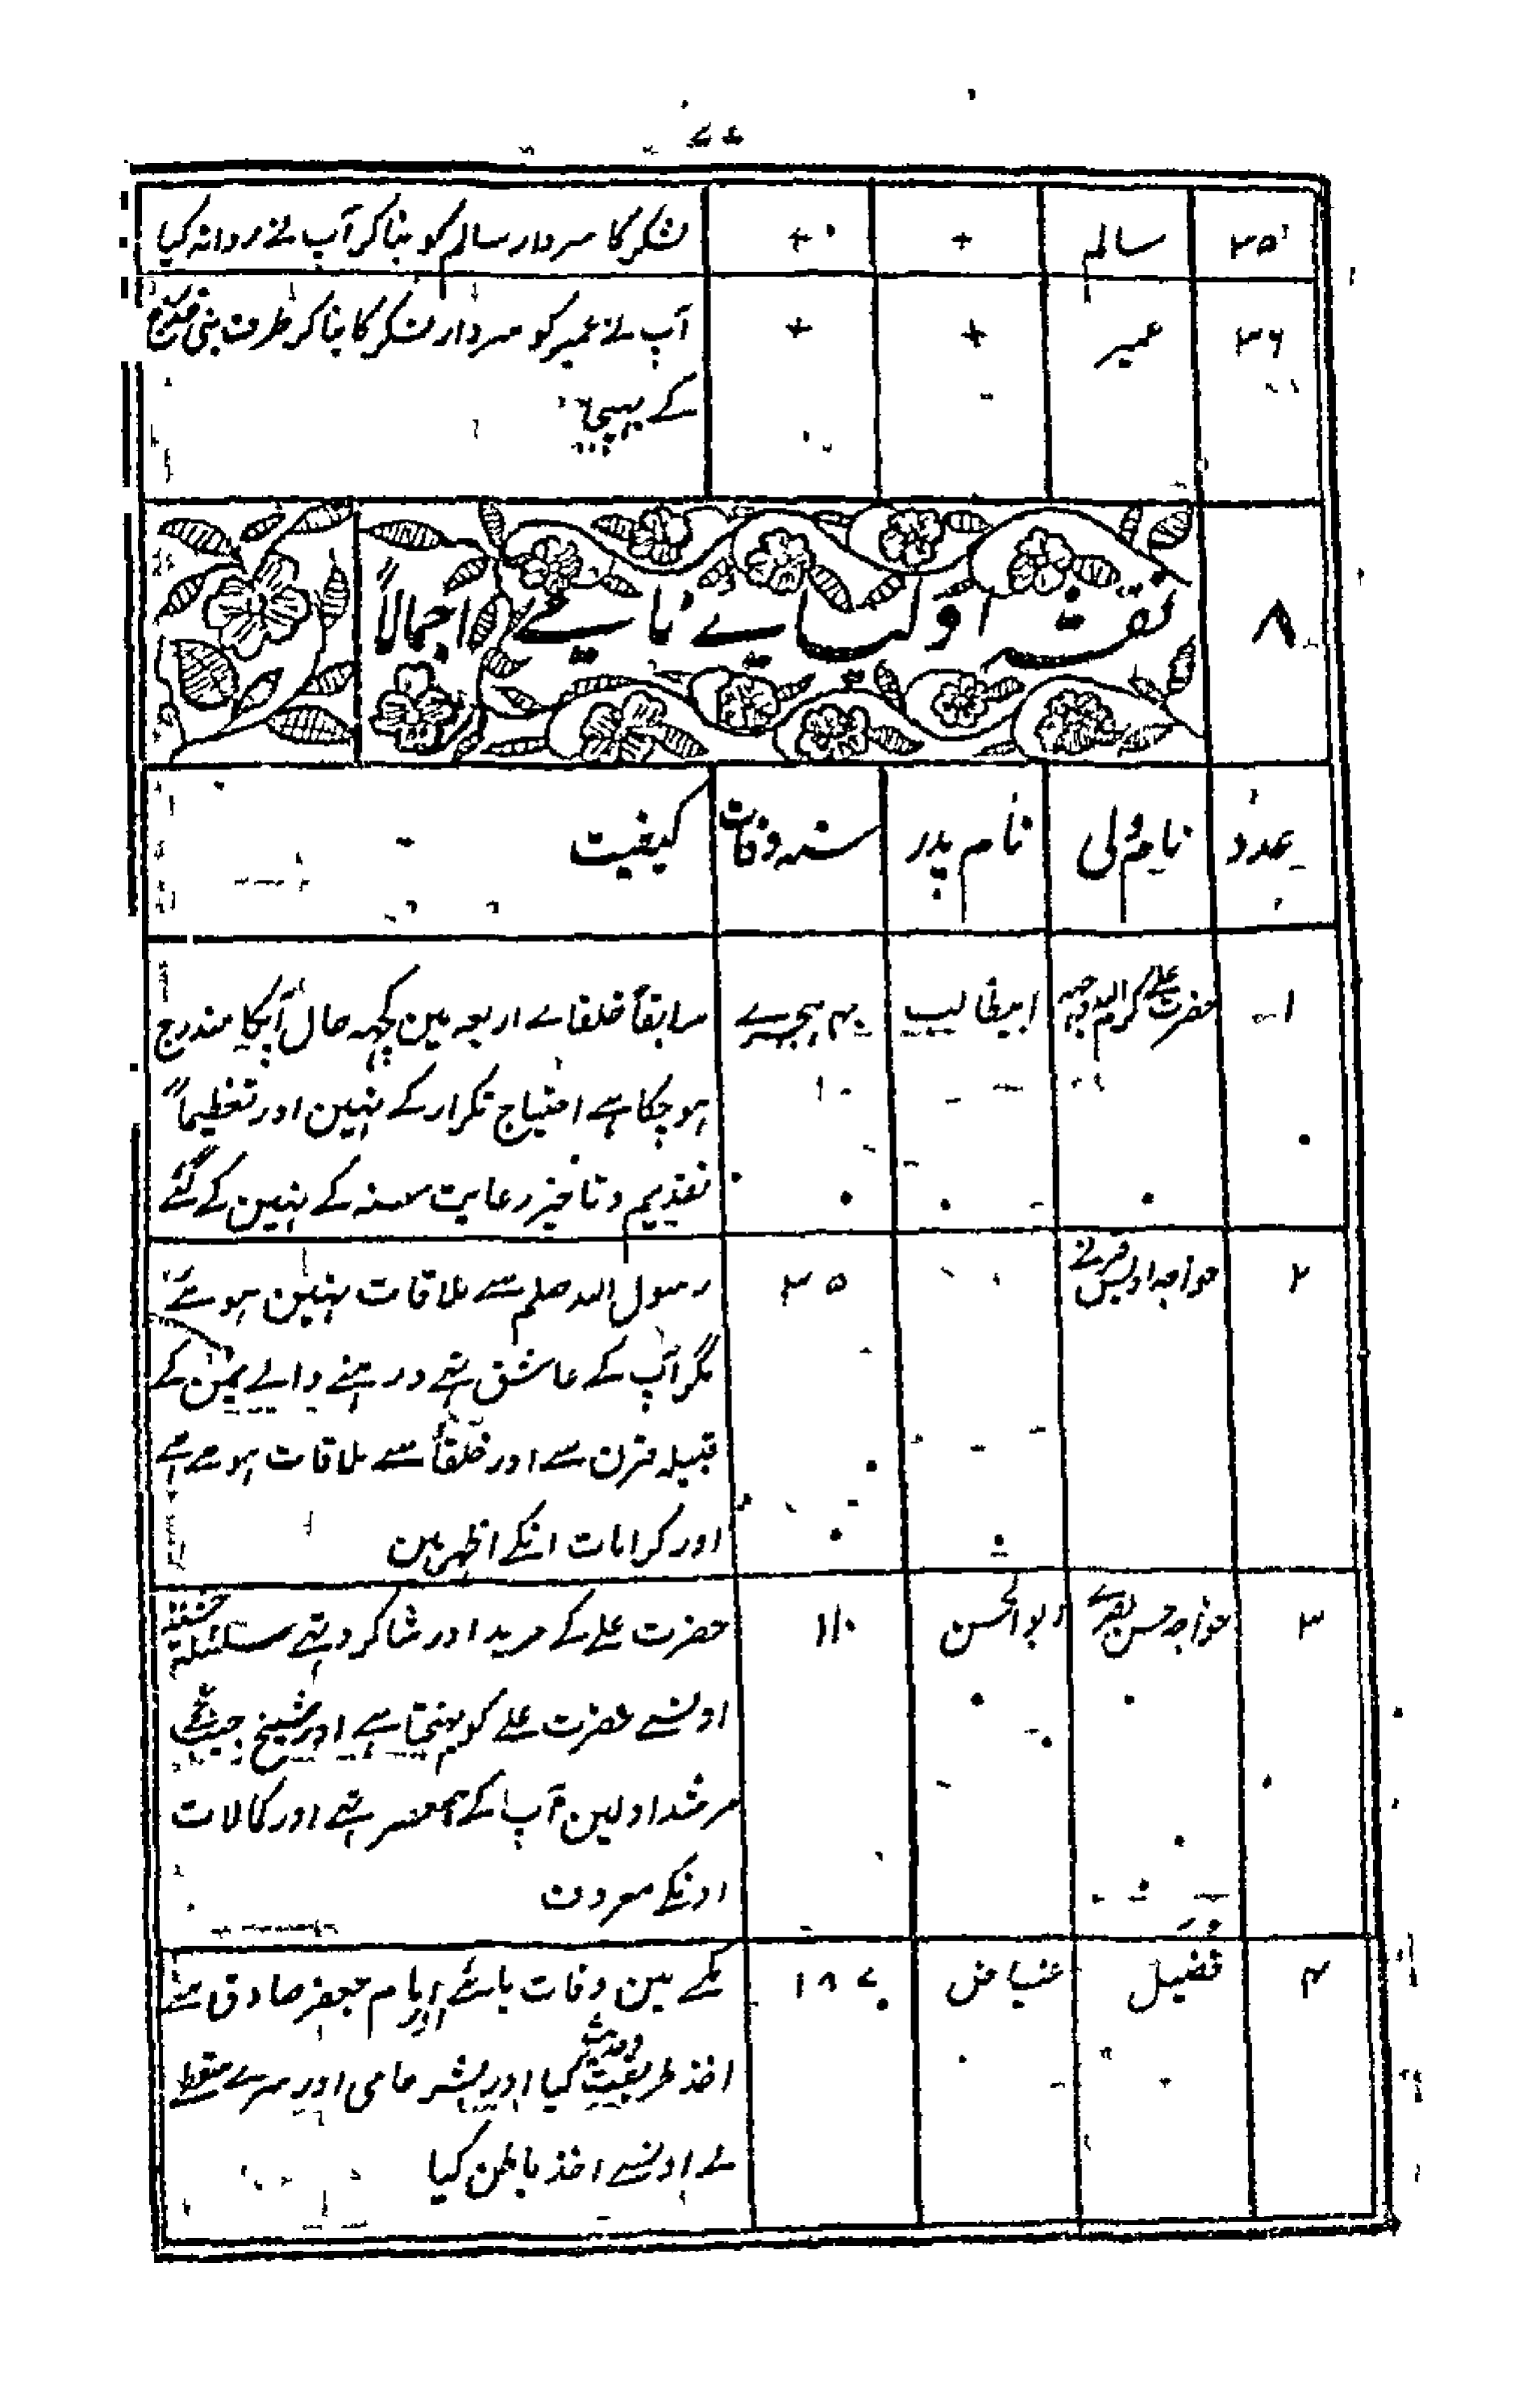 ۳۵ سالم + + لشکر کا سردار سالم کو بنا کر آپ نے روانہ کیا
۳۶ عمیر + + آپ نے عمیر کو سردار لشکر کا بنا کر طرف بنی
کے بھیجا
۸ نقشہ اولیائے نامی اجمالاً
عدد نام ولی نام پدر سنہ وفات کیفیت
۱ حضرت علی کرم اللہ وجہہ ابیطالب ۴۰ ہجرے سابقاً خلفاے اربعہ مین کچہہ حال آپکا مندرج
ہو چکا ہے احتیاج تکرار کے نہین اور تعظیماً
تقدیم و تاخیر رعایت سنہ کے نہین کے گئے
۲ خواجہ اویس قرنے ۳۵ رسول اللہ صلم سے ملاقات نہین ہوئے
مگر آپ کے عاشق تہے رہنے والے یمن کے
قبیلہ قرن سے اور خلفا سے ملاقات ہوے ہے
اور کرامات انکے اظہر ہین
۳ خواجہ حسن بصرے ابوالحسن ۱۱۰ حضرت علے کے مرید اور شاگرد تہے سلسلہ
اونسے حضرت علے کو پہنچتا ہے اور شیخ
مرشد اولین آپ کے ہمعصر تہے اور کمالات
اونکے معروف
۴ فضیل عیاض ۱۸۷ مکے مین وفات پائے اور امام جعفر صادق سے
اخذ طریقت و حدیث کیا اور بشر حافی اور سرے سقطی
نے اونسے اخذ باطن کیا